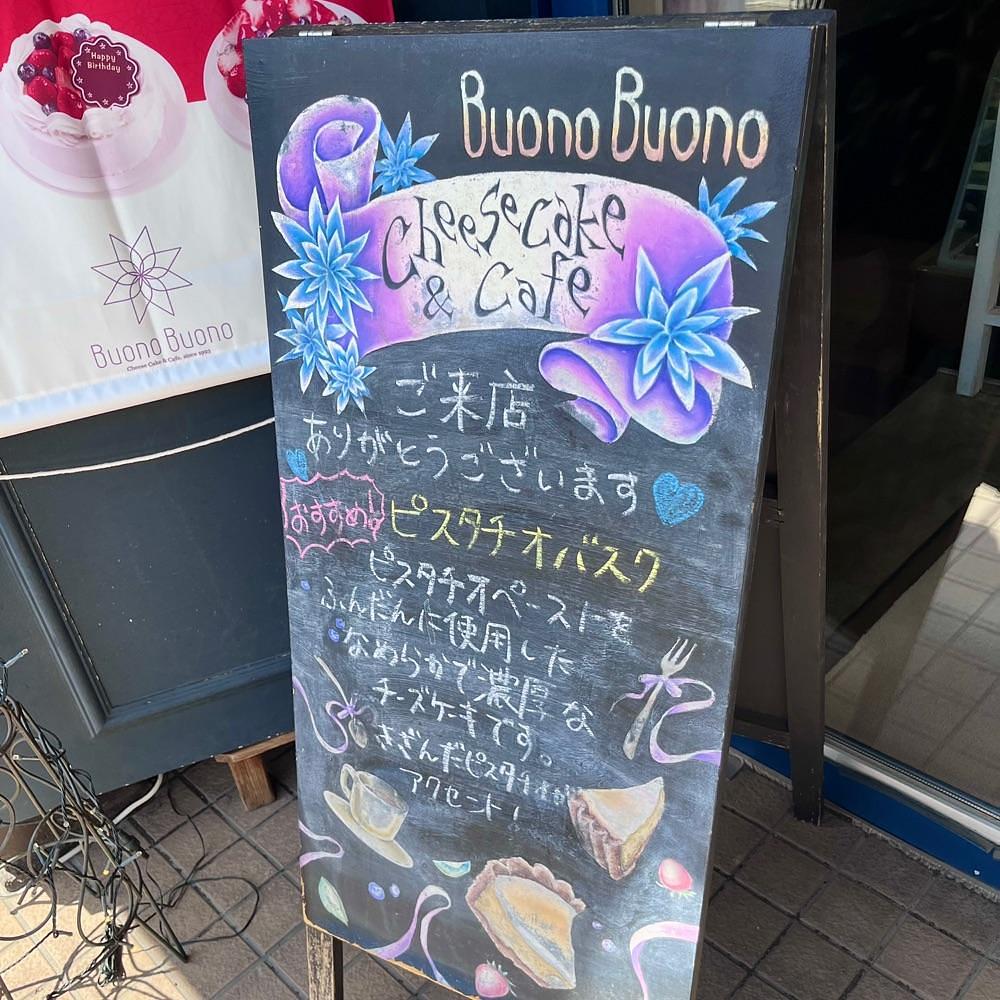 Happy
Birthday
Buono Buono
Cheese Cake & Cafe, since 1992
Buono Buono
Cheesecake
& Cafe
ご来店
ありがとうございます
おすすめ!!
ピスタチオバスク
ピスタチオペーストを
ふんだんに使用した
なめらかで濃厚な
チーズケーキです。
きざんだピスタチオが
アクセント!